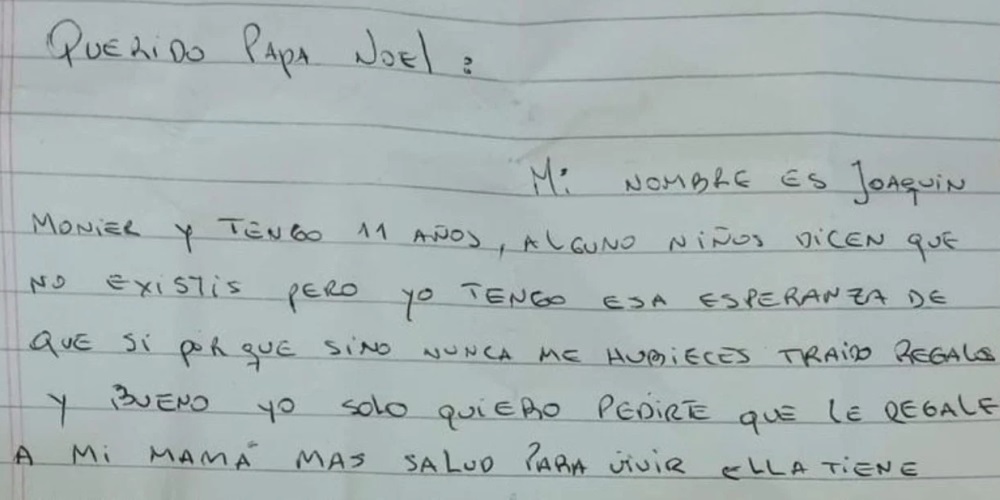 QUERIDO PAPA NOEL:
Mi NOMBRE ES JOAQUIN
MONIER Y TENGO 11 AÑOS, ALGUNO NIÑOS DICEN QUE
NO EXISTIS PERO YO TENGO ESA ESPERANZA DE
QUE SI PORQUE SINO NUNCA ME HUBIECES TRAIDO REGALOS
Y BUENO YO SOLO QUIERO PEDIRTE QUE LE REGALE
A MI MAMÁ MAS SALUD PARA VIVIR ELLA TIENE